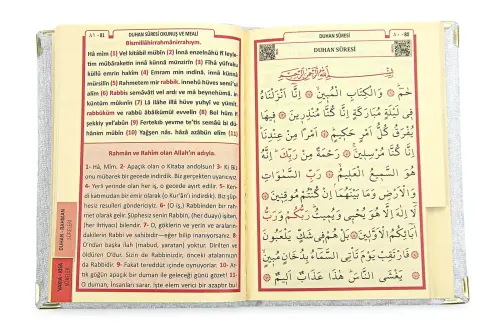 ٨١ - 81
DUHAN SÛRESİ OKUNUŞ VE MEALİ
Bismillâhirrahmânirrahıym.
Hâ mîm (1) Vel kitâbil mübîn (2) İnnâ enzelnâhü fî leyle-
tim mübâraketin innâ künnâ münzirîn (3) Fîhâ yüfraku
küllü emrin hakîm (4) Emram min ındinâ, innâ künnâ
mürsilîn (5) Rahmetem mir rabbik, innehû hüves semî'ul
alîm (6) Rabbis semâvâti vel ardı ve mâ beynehümâ, in
küntüm mûkınîn (7) Lâ ilâhe illâ hüve yuhyî ve yümît,
rabbüküm ve rabbü âbâikümül evvelîn (8) Bel hüm fî
şekkiy yel'abûn (9) Fertekıb yevme te'tis semâü bi dü-
hânim mübîn (10) Yağşen nâs, hâzâ azâbün elîm (11)
Rahmân ve Rahîm olan Allah'ın adıyla.
1- Hâ, Mîm. 2- Apaçık olan o Kitaba andolsun! 3- Ki Biz
onu mübarek bir gecede indirdik. Biz gerçekten uyarıcıyız.
4- Yerli yerinde olan her iş, o gecede ayırt edilir. 5- Ken-
di katımızdan bir emir olarak (o Kur'ân'ı indirdik). Biz şüp-
hesiz resulleri göndericiyiz. 6- (O iş,) Rabbinden bir rah-
met olarak gelir. Şüphesiz senin Rabbin, (her duayı) işiten,
(her ihtiyacı) bilendir. 7- O, göklerin ve yerin ve arala-
rındakilerin Rabbi ve sahibidir—eğer bilip inanıyorsanız. 8-
O'ndan başka ilah (mabud, yaratan) yoktur. Diriltен ve
öldüren O'dur. Sizin de Rabbinizdir, önceki atalarınızın
da Rabbidir. 9- Fakat tereddüt içinde oynuyorlar. 10- Ar-
tık göğün apaçık bir duman ile geleceği günü gözet! 11- O
duman, insanları sarar. İşte elem verici bir azaptır bu.
DUHAN - RAHMAN
SÛRELERİ
٨٠ - 80
DUHAN SÛRESİ
DUHAN SÛRESİ
بِسْمِ اللهِ الرَّحْمٰنِ الرَّحِيمِ
حٰمٓ ۞ وَالْكِتَابِ الْمُبِينِ ۞ اِنَّٓا اَنْزَلْنَاهُ
فِي لَيْلَةٍ مُبَارَكَةٍ اِنَّا كُنَّا مُنْذِرِينَ ۞ فِيهَا
يُفْرَقُ كُلُّ اَمْرٍ حَكِيمٍ ۞ اَمْرًا مِنْ عِنْدِنَا
اِنَّا كُنَّا مُرْسِلِينَ ۞ رَحْمَةً مِنْ رَبِّكَ اِنَّهُ
هُوَ السَّمِيعُ الْعَلِيمُ ۞ رَبِّ السَّمٰوَاتِ
وَالْاَرْضِ وَمَا بَيْنَهُمَا اِنْ كُنْتُمْ مُوقِنِينَ ۞
لَٓا اِلٰهَ اِلَّا هُوَ يُحْيِي وَيُمِيتُ رَبُّكُمْ وَرَبُّ
اٰبَٓائِكُمُ الْاَوَّلِينَ ۞ بَلْ هُمْ فِي شَكٍّ يَلْعَبُونَ
۞ فَارْتَقِبْ يَوْمَ تَاْتِي السَّمَٓاءُ بِدُخَانٍ مُبِينٍ
۞ يَغْشَى النَّاسَ هٰذَا عَذَابٌ اَلِيمٌ ۞